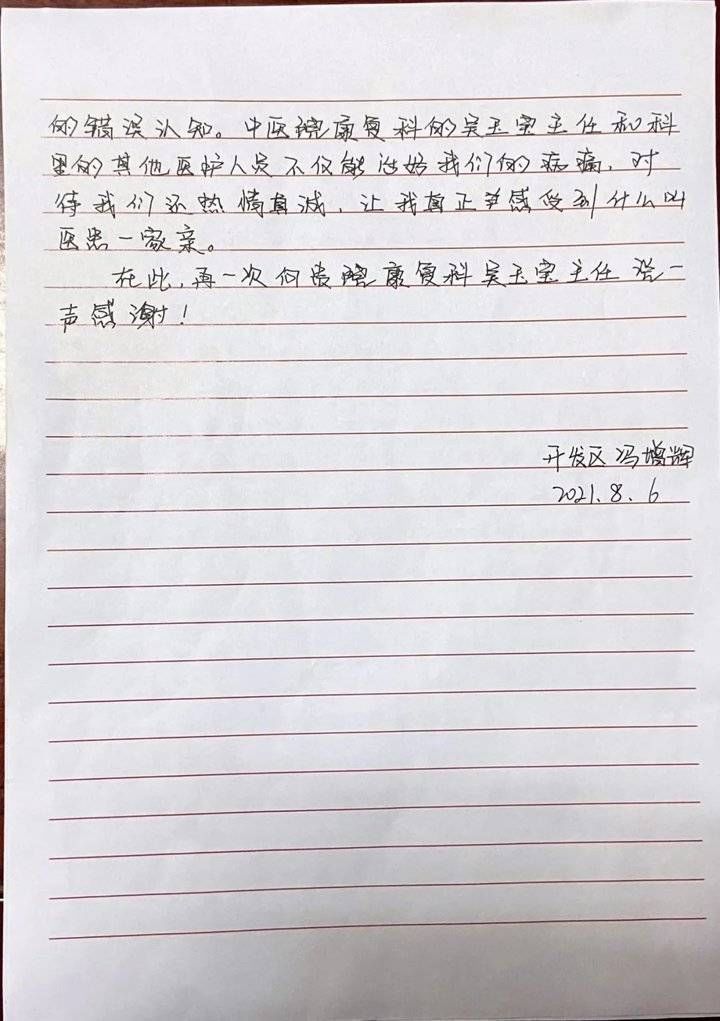 的错误认知。中医院康复科的吴玉宝主任和科
里的其他医护人员不仅能治好我们的病痛，对
待我们还热情真诚，让我真正感受到什么叫
医患一家亲。
在此，再一次向贵院康复科吴玉宝主任说一
声感谢！
开发区 冯增辉
2021.8.6